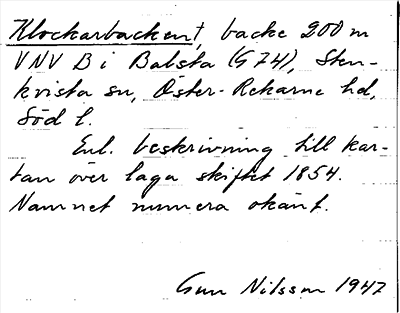 Klockarbacken†, backe 200 m
VNV B i Balsta (G 74), Sten-
kvista sn, Öster-Rekarne hd,
Söd l.
Enl. beskrivning till kar-
tan över laga skiftet 1854.
Namnet numera okänt.
Gun Nilsson 1947